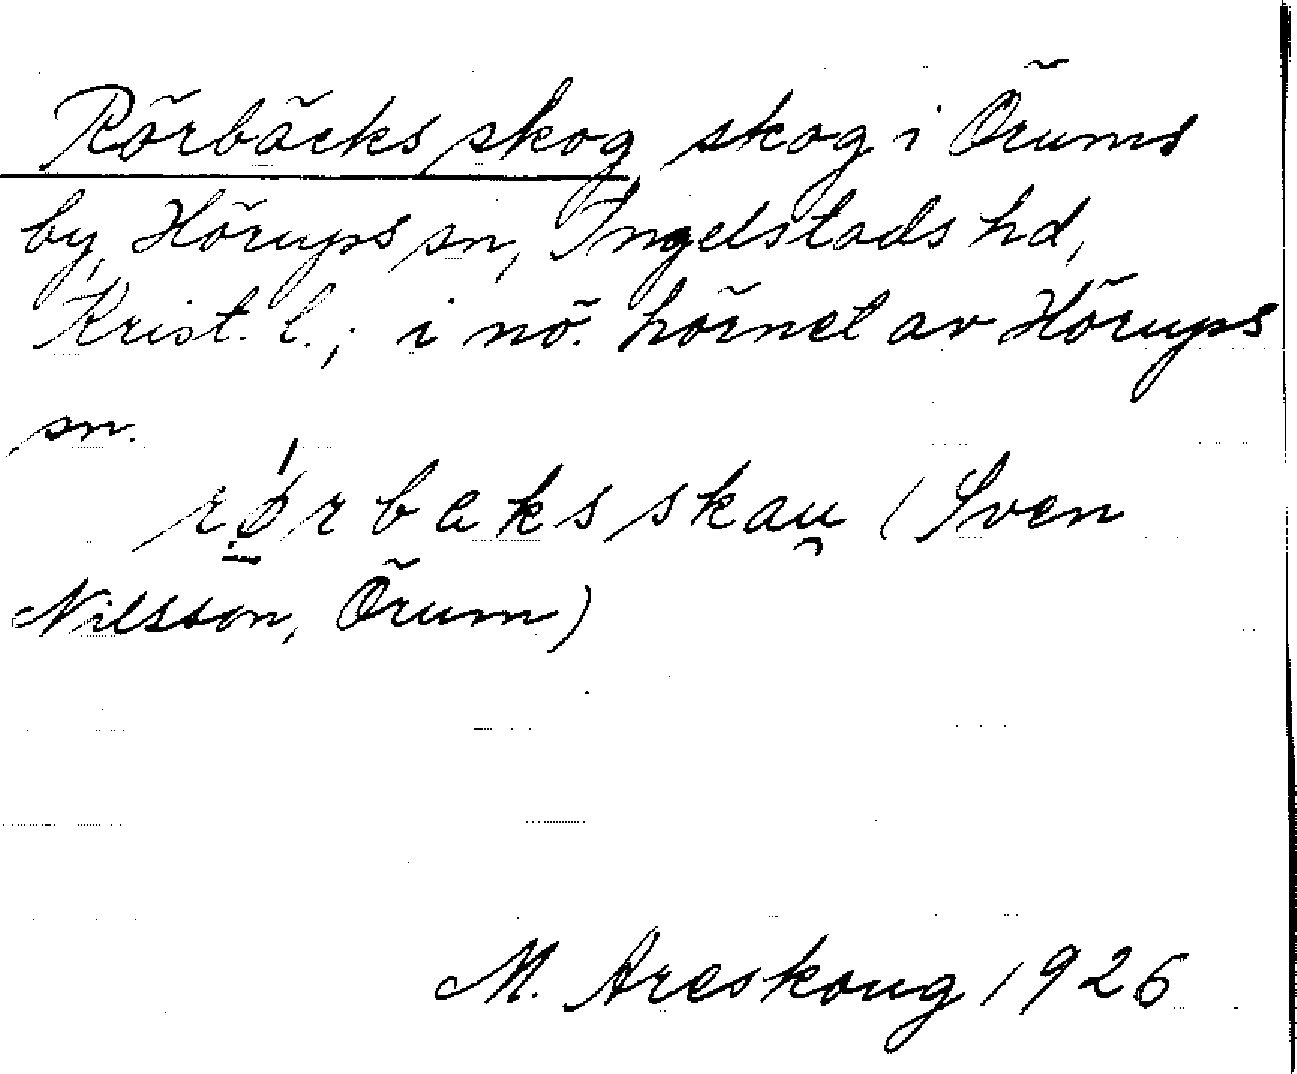 Rörbäcks skog, skog i Örums
by, Hörups sn, Ingelstads hd,
Krist. l.; i nö. hörnet av Hörups
sn.
rǿ̠rbaksskau̯ (Sven
Nilsson, Örum)
M. Areskoug 1926